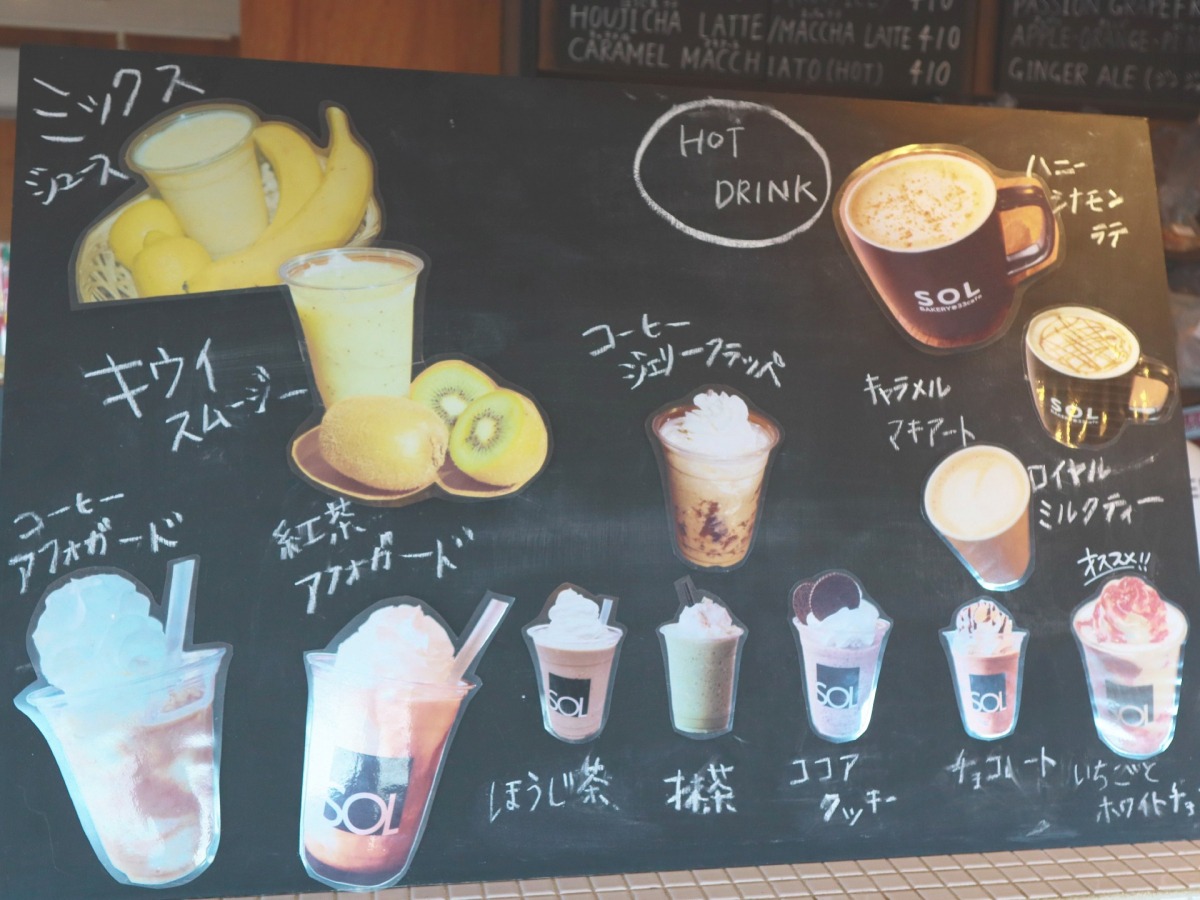 HOUJICHA LATTE/MACCHA LATTE 410
CARAMEL MACCHIATO (HOT) 410
PASSION GRAPEFR
APPLE·ORANGE·
GINGER ALE
ミックス
ジュース
HOT
DRINK
ハニー
シナモン
ラテ
SOL
BAKERY@23cafe
キウイ
スムージー
コーヒー
ジェリーフラッペ
キャラメル
マキアート
SOL
ロイヤル
ミルクティー
コーヒー
アフォガード
紅茶
アフォガード
オススメ!!
SOL
SOL
SOL
SOL
SOL
ほうじ茶
抹茶
ココア
クッキー
チョコレート
いちごと
ホワイトチョ